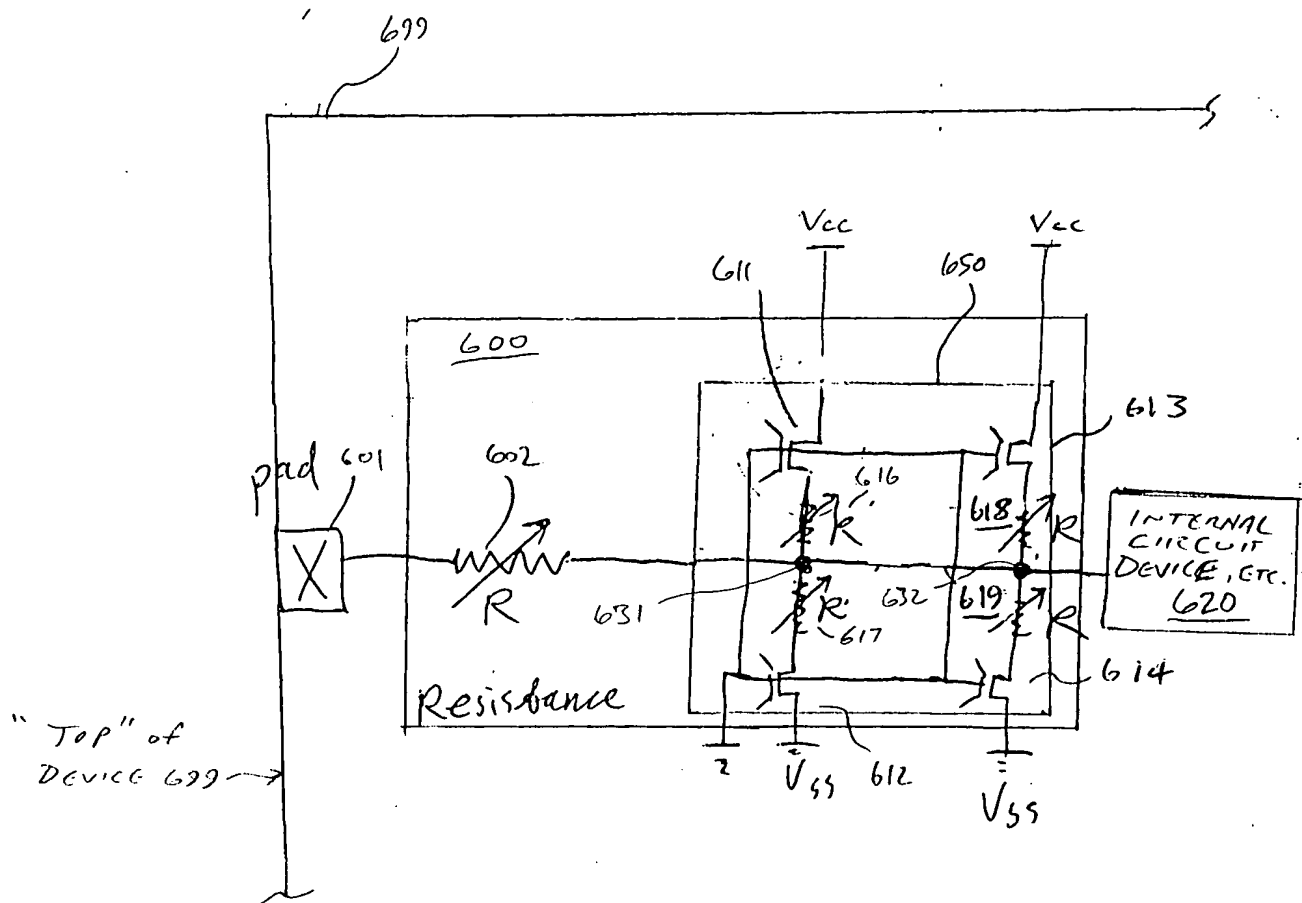 699
Vcc
Vcc
611
650
600
613
pad
601
602
616
R
618
R
INTERNAL
CIRCUIT
DEVICE, ETC.
620
R
631
R
617
632
619
R
614
Resistance
"TOP" of
DEVICE 699
Vss
612
Vss